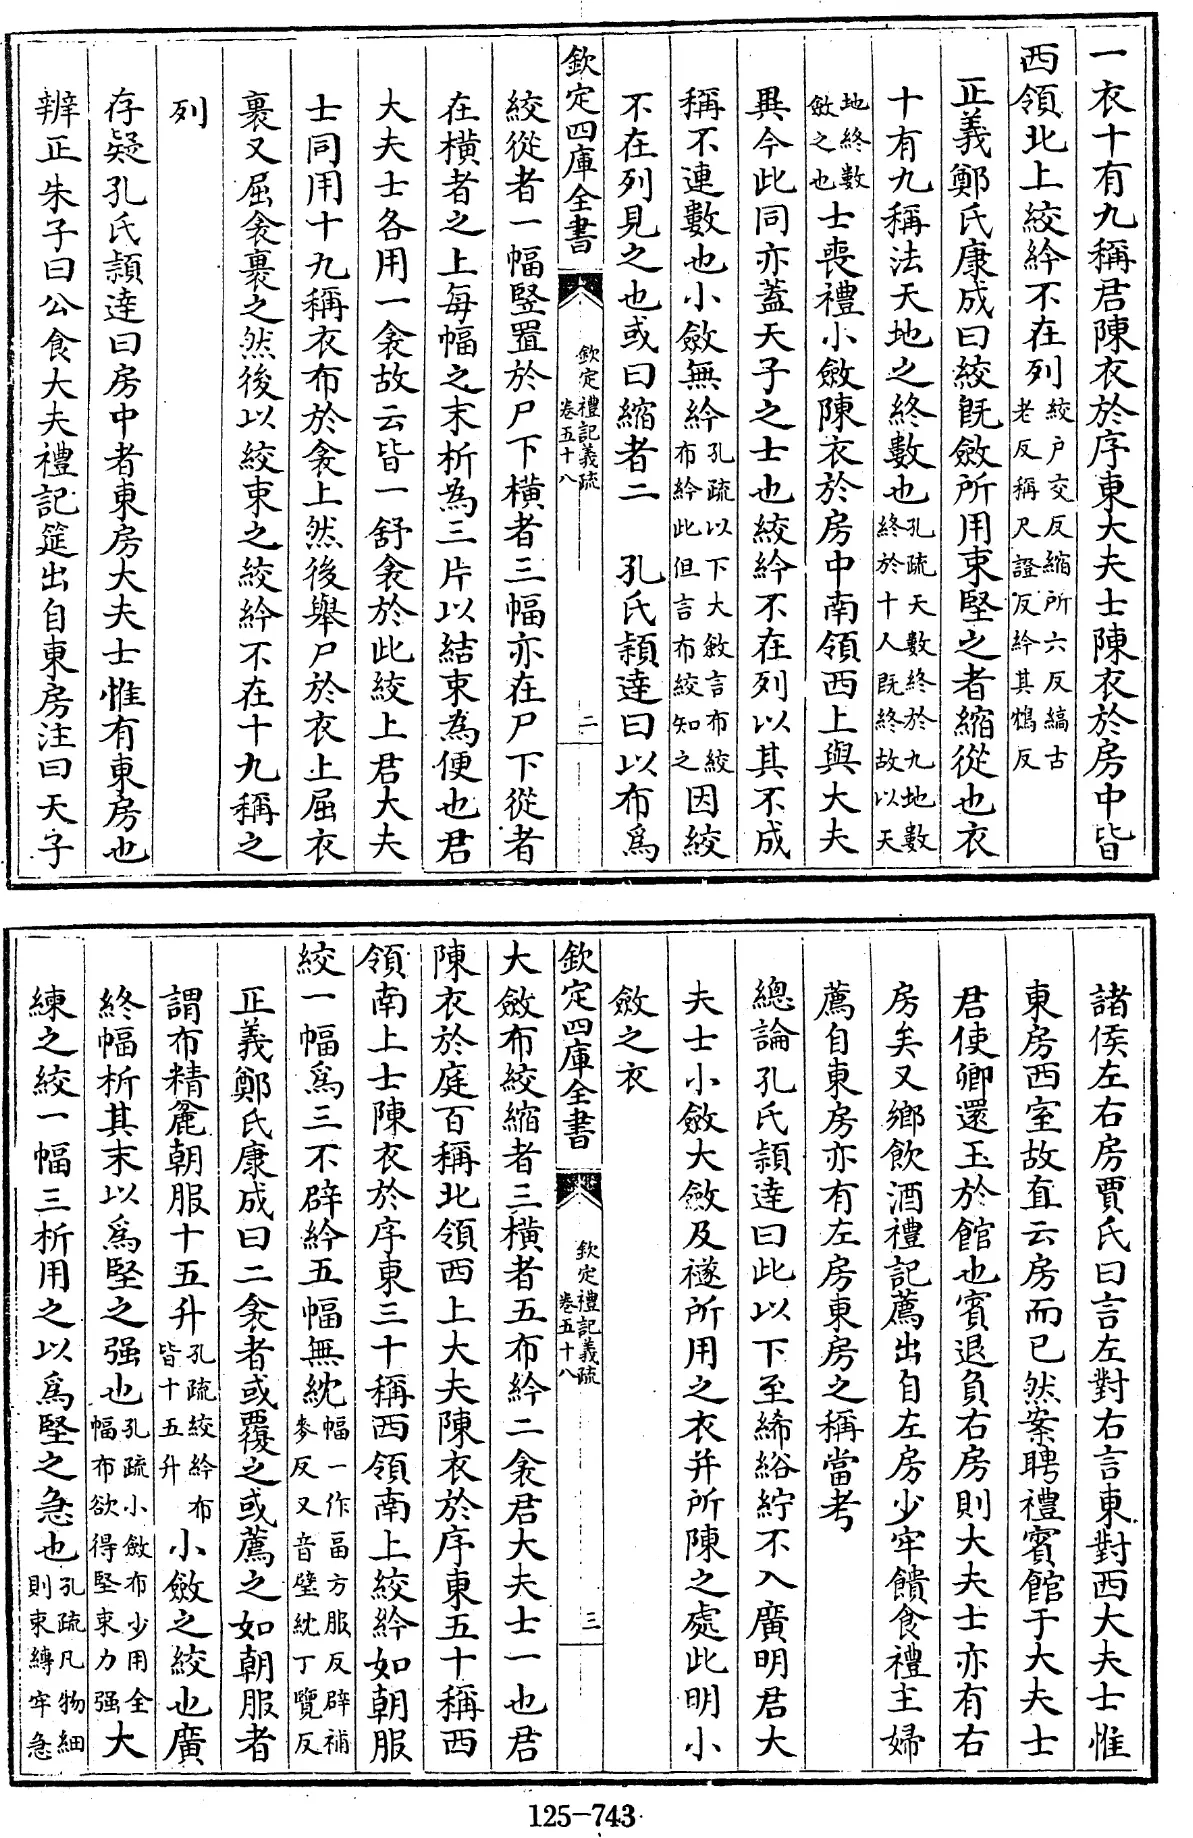 一衣十有九稱君陳衣於序東大夫士陳衣於房中皆
西領北上絞紟不在列絞户交反縮所六反縞古老反稱尺證反紟其鴆反
正義鄭氏康成曰絞既斂所用束堅之者縮從也衣
十有九稱法天地之終數也孔疏天數終於九地數終於十人既終故以天
地終數斂之也士喪禮小斂陳衣於房中南領西上與大夫
異今此同亦蓋天子之士也絞紟不在列以其不成
稱不連數也小斂無紟孔疏以下大斂言布絞布紟此但言布絞知之因絞
不在列見之也或曰縮者二 孔氏穎達曰以布爲
欽定四庫全書 欽定禮記義疏 卷五十八 二
絞從者一幅竪置於尸下橫者三幅亦在尸下從者
在橫者之上每幅之末析為三片以結束為便也君
大夫士各用一衾故云皆一舒衾於此絞上君大夫
士同用十九稱衣布於衾上然後舉尸於衣上屈衣
裹又屈衾裹之然後以絞束之絞紟不在十九稱之
列
存疑孔氏穎達曰房中者東房大夫士惟有東房也
辨正朱子曰公食大夫禮記筵出自東房注曰天子
諸侯左右房賈氏曰言左對右言東對西大夫士惟
東房西室故直云房而已然案聘禮賓館于大夫士
君使卿還玉於館也賓退負右房則大夫士亦有右
房矣又鄉飲酒禮記薦出自左房少牢饋食禮主婦
薦自東房亦有左房東房之稱當考
總論孔氏穎達曰此以下至絺綌紵不入廣明君大
夫士小斂大斂及襚所用之衣并所陳之處此明小
斂之衣
欽定四庫全書 欽定禮記義疏 卷五十八 三
大斂布絞縮者三橫者五布紟二衾君大夫士一也君
陳衣於庭百稱北領西上大夫陳衣於序東五十稱西
領南上士陳衣於序東三十稱西領南上絞紟如朝服
絞一幅爲三不辟紟五幅無紞幅一作畐方服反辟補麥反又音璧紞丁覽反
正義鄭氏康成曰二衾者或覆之或薦之如朝服者
謂布精麄朝服十五升孔疏絞紟布皆十五升小斂之絞也廣
終幅析其末以爲堅之强也孔疏小斂布少用全幅布欲得堅束力强大
練之絞一幅三析用之以爲堅之急也孔疏凡物細則束縛牢急
125-743